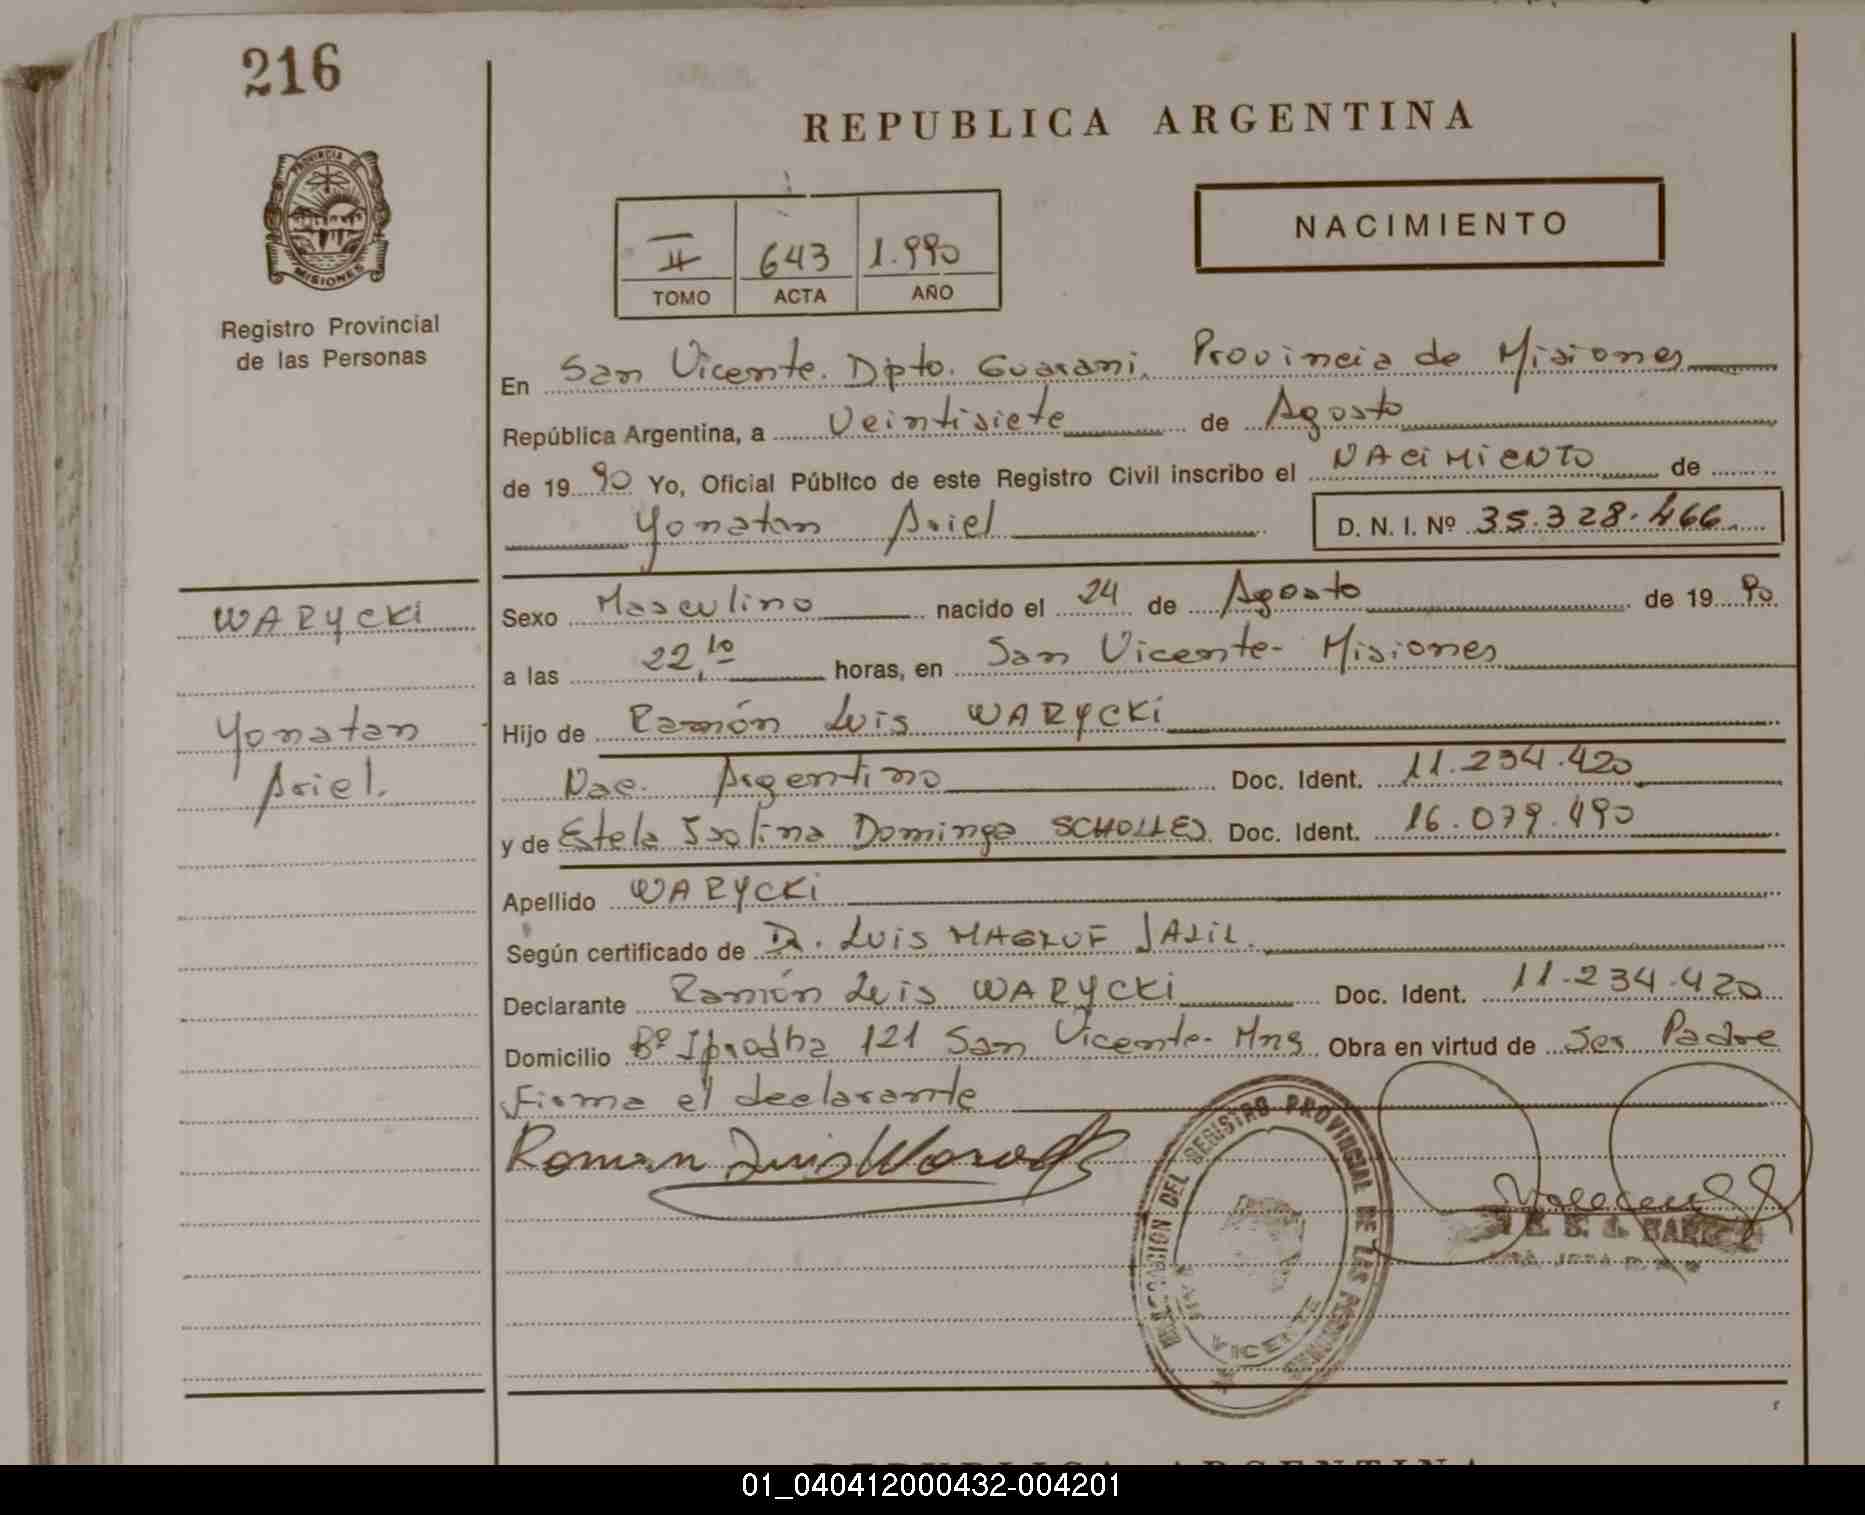 216
REPUBLICA ARGENTINA
PROVINCIA DE
MISIONES
Registro Provincial
de las Personas
II 643 1.990
TOMO ACTA AÑO
NACIMIENTO
En San Vicente. Dpto. Guarani. Provincia de Misiones
República Argentina, a Veintisiete de Agosto
de 1990 Yo, Oficial Público de este Registro Civil inscribo el NACIMIENTO de
Yonatan Ariel
D. N. I. Nº 35.328.466
WARYCKI
Yonatan
Ariel.
Sexo Masculino nacido el 24 de Agosto de 1990
a las 22,10 horas, en San Vicente- Misiones
Hijo de Ramón Luis WARYCKI
Nac. Argentino Doc. Ident. 11.234.420
y de Estela Isolina Dominga SCHOLLES Doc. Ident. 16.079.490
Apellido WARYCKI
Según certificado de Dr. Luis MAGLUF JALIL.
Declarante Ramón Luis WARYCKI Doc. Ident. 11.234.420
Domicilio Bº 121 San Vicente- Mns Obra en virtud de Ser Padre
Firma el declarante
Roman Luis
DEL REGISTRO PROVINCIAL DE LAS PERSONAS
SAN VICENTE
REPUBLICA ARGENTINA
01_040412000432-004201